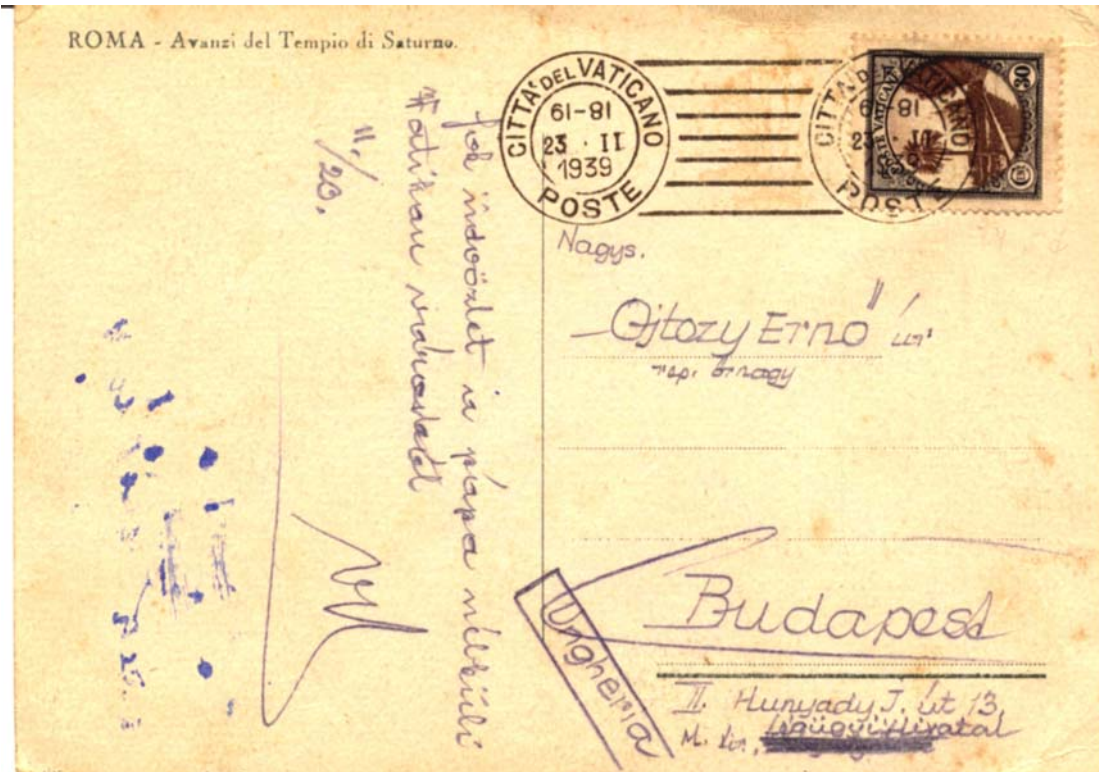 ROMA - Avanzi del Tempio di Saturno.
CITTA' DEL VATICANO
18-19
23 · II
1939
POSTE
CITTA' DEL VATICANO
18-19
23 · II
POSTE
POSTE VATICANE
30
Sok üdvözlet a pápa nélküli
Vatikán városból
II./23.
Nagys.
Ojtozy Ernő úr
őrnagy
Budapest
Ungheria
II. Hunyady J. út 13.
M. kir. Légügyi Hivatal